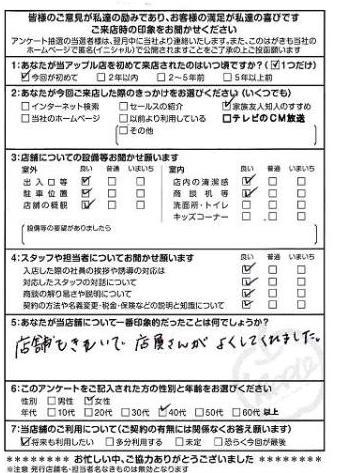 皆様のご意見が私達の励みであり、お客様の満足が私達の喜びです
ご来店時の印象をお聞かせください
アンケート抽選の当選者様は、翌月中に当社より連絡いたします。また、このはがきも当社の
ホームページで匿名(イニシャル)で公開されますことをご了承の上ご投函願います
1:あなたが当アップル店を初めて来店されたのはいつ頃ですか?(☑1つだけ)
☑今回が初めて □2年以内 □2~5年前 □5年以上前
2:あなたが今回ご来店した際のきっかけをお選びください(いくつでも)
□インターネット検索 □セールスの紹介 ☑家族友人知人のすすめ
□当社のホームページ □以前より利用している □テレビのCM放送
□その他
3:店舗についての設備等お聞かせ願います
室外 良い 普通 いまいち 室内 良い 普通 いまいち
出入口等 ☑ □ □ 店内の清潔感 ☑ □ □
駐車位置 ☑ □ □ 商談机等 ☑ □ □
店舗の概観 ☑ □ □ 洗面所・トイレ □ □ □
キッズコーナー □ □ □
設備等の要望がありましたら
4:スタッフや担当者についてお聞かせ願います 良い 普通 いまいち
入店した際の社員の挨拶や誘導の対応は ☑ □ □
対応したスタッフの対話について ☑ □ □
商談の解り易さや説明について ☑ □ □
契約の方法や名義変更・税金・保険などの説明と知識について ☑ □ □
5:あなたが当店舗について一番印象的だったことは何でしょうか?
店舗もきれいで 店員さんが よくしてくれました。
6:このアンケートをご記入された方の性別と年齢をお選びください
性別 □男性 ☑女性
年代 □10代 □20代 □30代 ☑40代 □50代 □60代以上
7:当店舗のご利用について(ご契約の有無には関係なくお答え願います)
☑将来も利用したい □多分利用する □未定 □恐らく今回が最後
******** お忙しい中、ご協力ありがとうございました ********
*注意 発行店舗名・担当者名なきものは無効となります